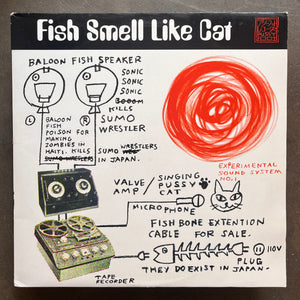 Fish Smell Like Cat
BALOON FISH SPEAKER
SONIC
SONIC
SONIC
BOOOM
KILLS
L
R
SUMO
WRESTLER
BALOON
FISH
POISON FOR
MAKING
ZOMBIES IN
HAITI. KILLS
SUMO WRESTLERS
SUMO
WRESTLERS
IN JAPAN.
EXPERIMENTAL
SOUND SYSTEM
NO.1
VALVE
AMP/
SINGING
PUSSY
CAT
MICROPHONE
FISH BONE EXTENTION
CABLE FOR SALE.
110V
PLUG
THEY DO EXIST IN JAPAN.
TAPE
RECORDER